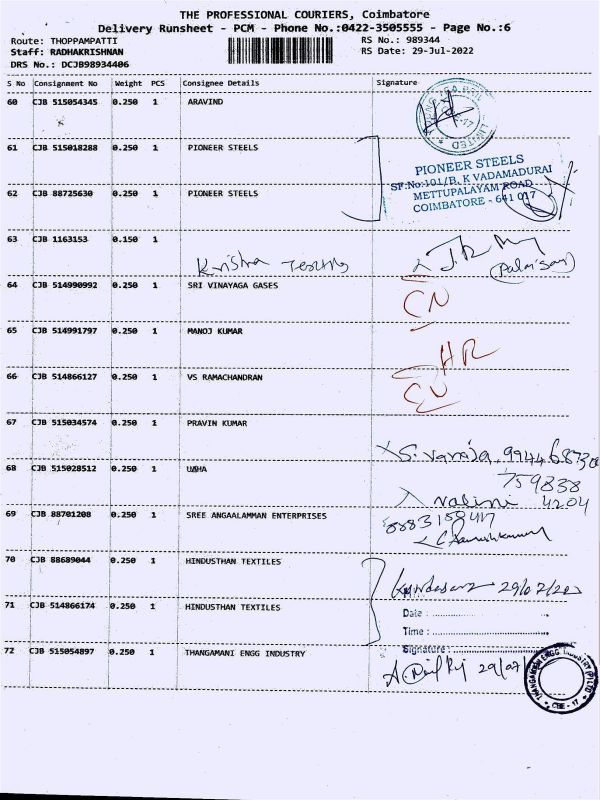 THE PROFESSIONAL COURIERS, Coimbatore
Delivery Runsheet - PCM - Phone No.:0422-3505555 - Page No.:6
Route: THOPPAMPATTI RS No.: 989344
Staff: RADHAKRISHNAN RS Date: 29-Jul-2022
DRS No.: DCJB98934406
S No Consignment No Weight PCS Consignee Details Signature
60 CJB 515054345 0.250 1 ARAVIND
LIMITED
61 CJB 515018288 0.250 1 PIONEER STEELS
PIONEER STEELS
SF.No:101/B, K VADAMADURAI
METTUPALAYAM ROAD
COIMBATORE - 641 017
62 CJB 88725630 0.250 1 PIONEER STEELS
63 CJB 1163153 0.150 1
Krishna
64 CJB 514990992 0.250 1 SRI VINAYAGA GASES
CN
65 CJB 514991797 0.250 1 MANOJ KUMAR
HR
66 CJB 514866127 0.250 1 VS RAMACHANDRAN
67 CJB 515034574 0.250 1 PRAVIN KUMAR
68 CJB 515028512 0.250 1 USHA
759838
Nalini 4204
69 CJB 88701208 0.250 1 SREE ANGAALAMMAN ENTERPRISES
70 CJB 88689044 0.250 1 HINDUSTHAN TEXTILES
71 CJB 514866174 0.250 1 HINDUSTHAN TEXTILES
Date :
Time :
Signature :
72 CJB 515054897 0.250 1 THANGAMANI ENGG INDUSTRY
29/07
THANGAMANI ENGG INDUSTRY (P) LTD
CBE - 17